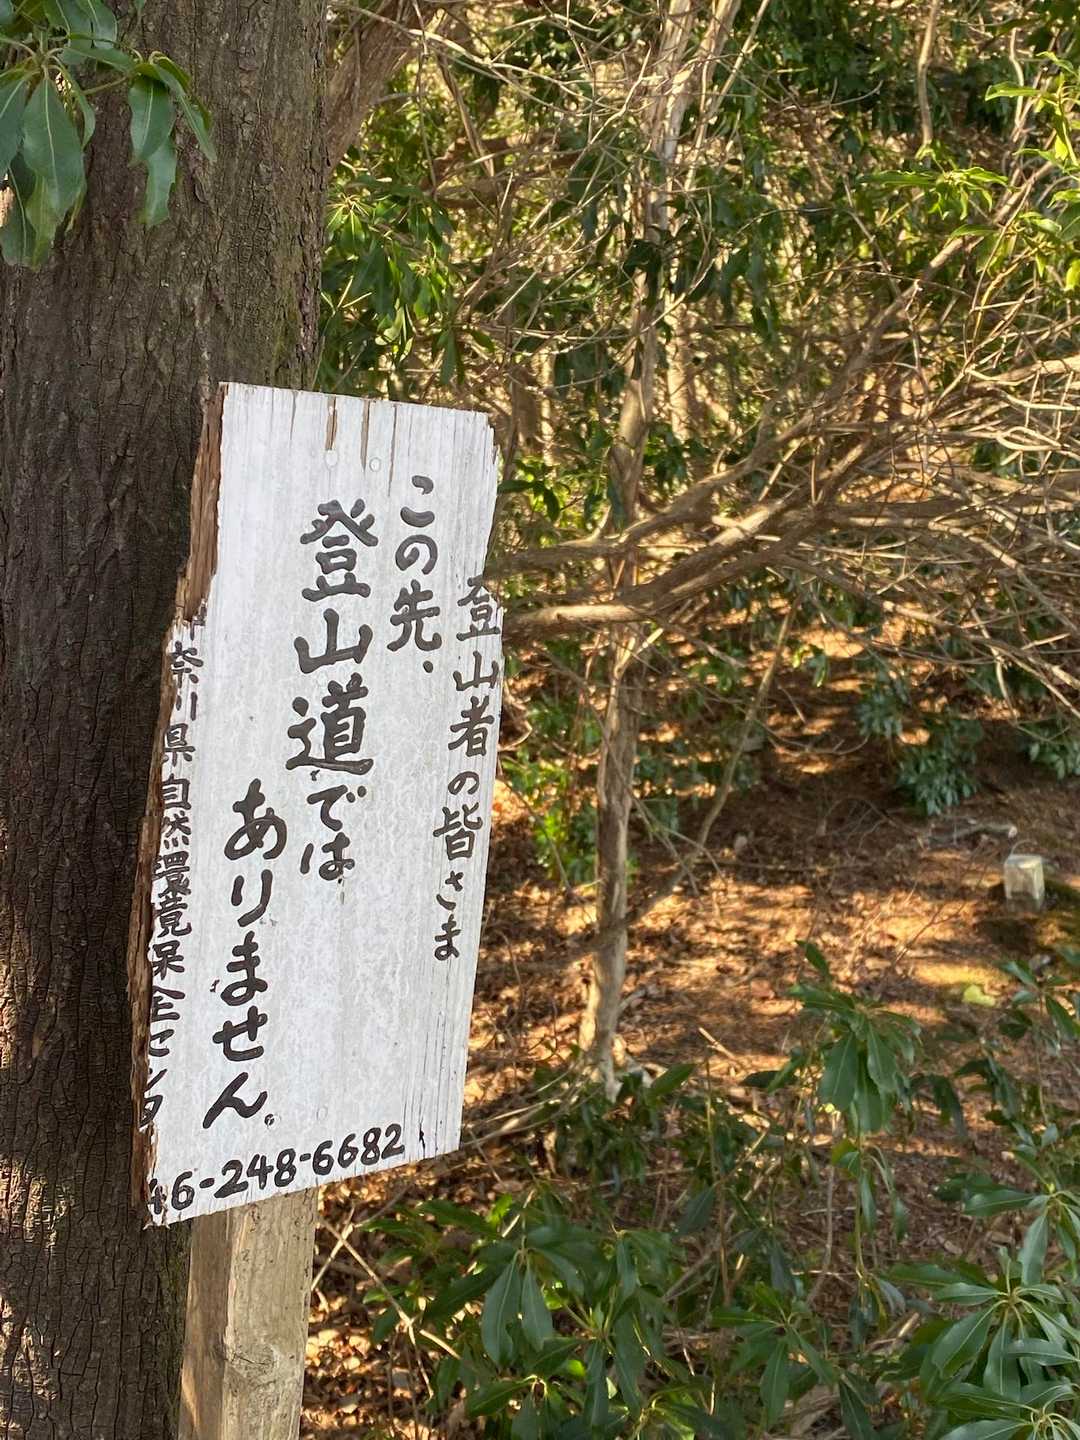 登山者の皆さま
この先、
登山道では
ありません。
奈川県自然環境保全センタ
46-248-6682